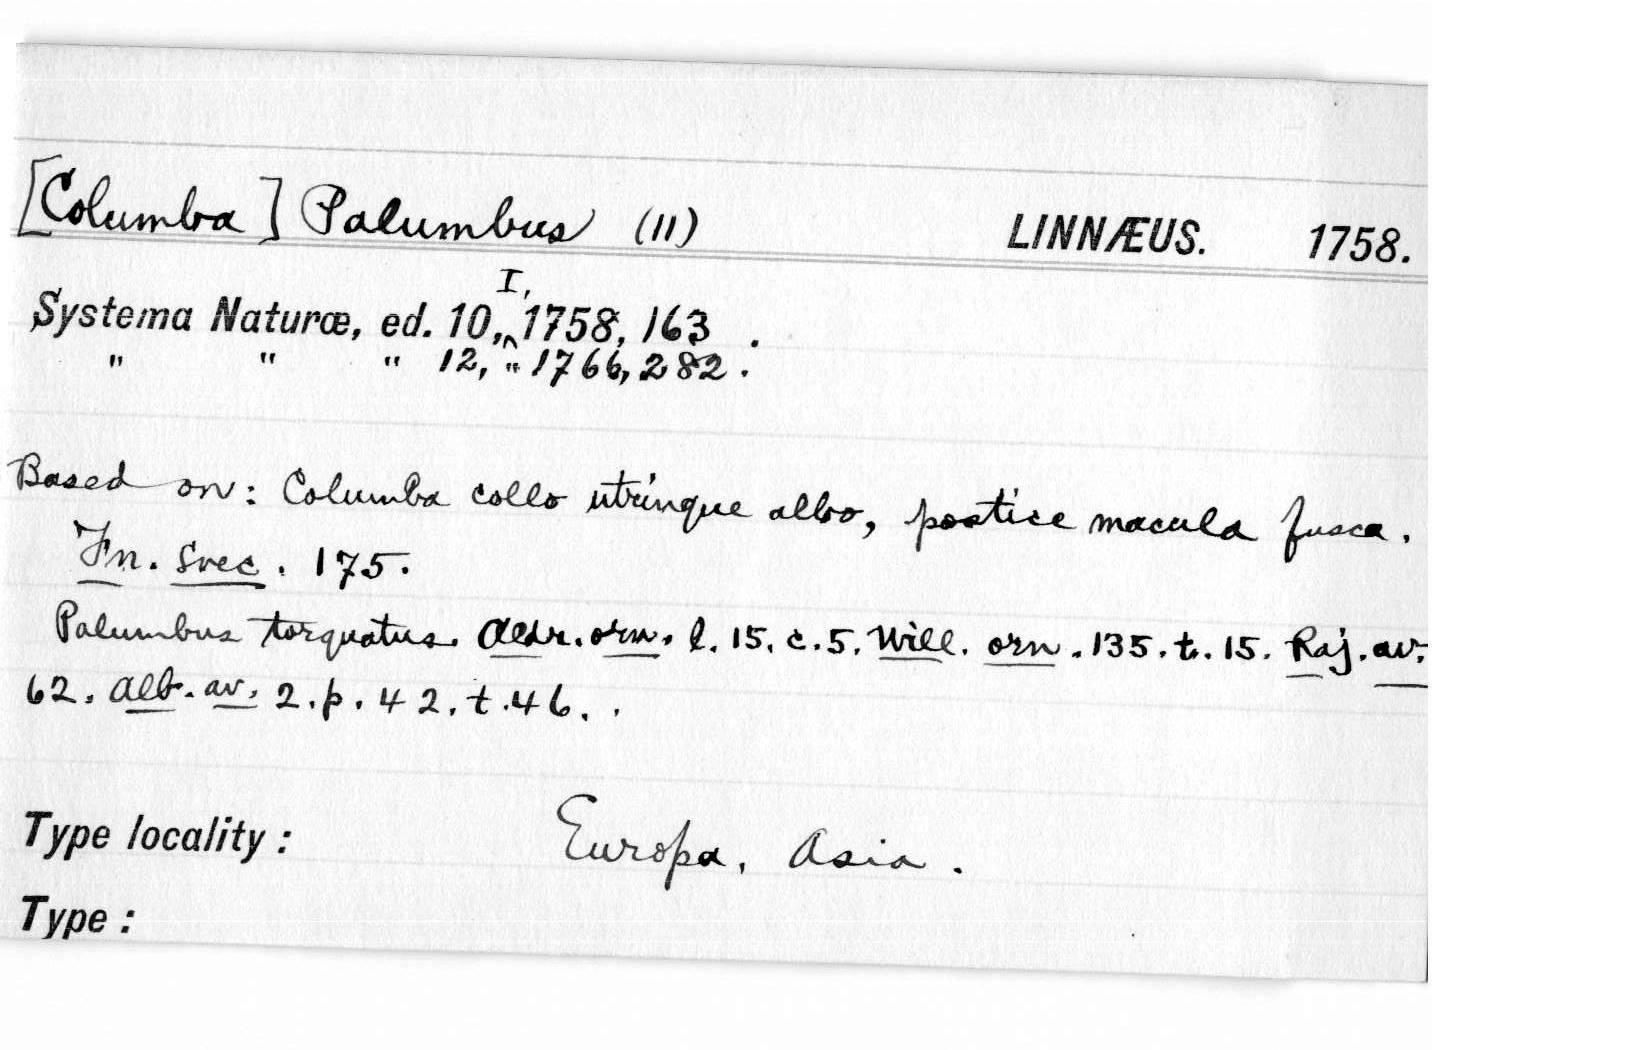 [Columba] Palumbus (11) LINNÆUS. 1758.
I,
Systema Naturæ, ed. 10,^ 1758, 163 .
" " " 12, " 1766, 282.
Based on: Columba collo utrinque albo, postice macula fusca.
Fn. Svec. 175.
Palumbus torquatus. Aldr. orn. l. 15. c. 5. Will. orn. 135. t. 15. Raj. av.
62. Alb. av. 2. p. 42. t. 46. .
Type locality: Europa, Asia.
Type: